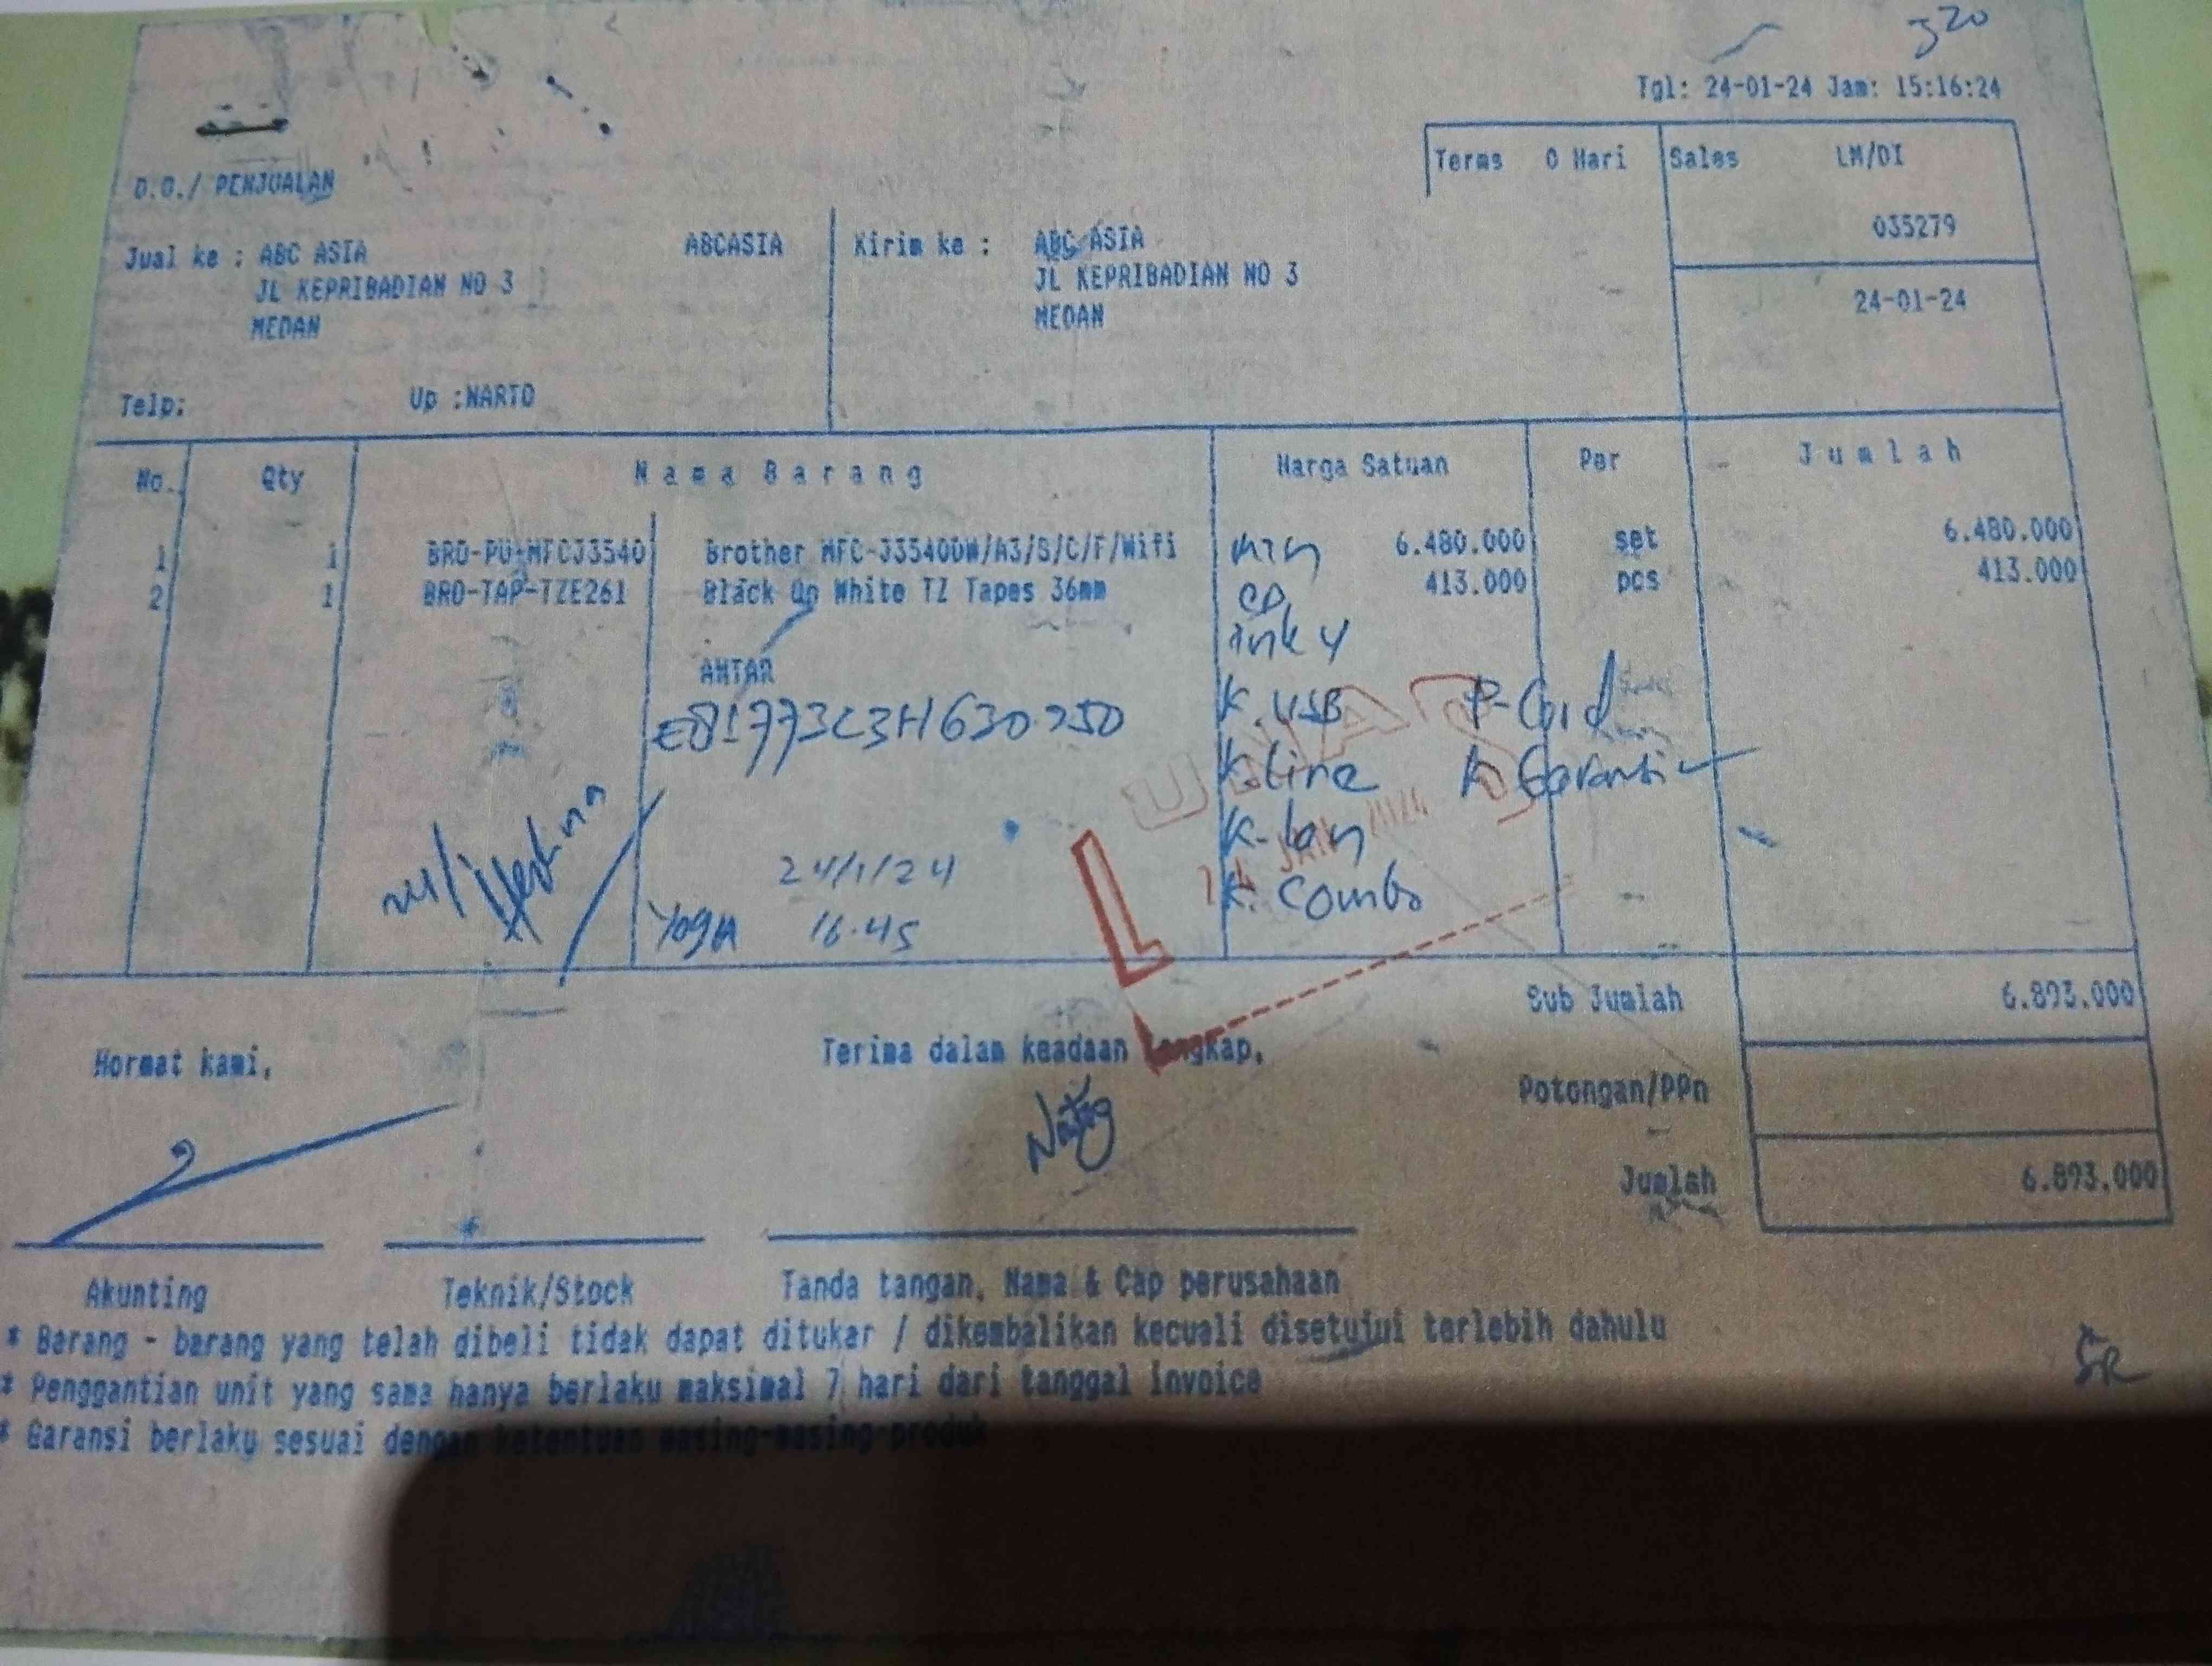 320
Tgl: 24-01-24 Jam: 15:16:24
D.O./ PENJUALAN
Terms 0 Hari
Sales LM/DI
035279
24-01-24
Jual ke : ABC ASIA ABCASIA
JL KEPRIBADIAN NO 3
MEDAN
Kirim ke : ABC ASIA
JL KEPRIBADIAN NO 3
MEDAN
Telp: Up :NARTO
No. Qty Nama Barang Harga Satuan Per Jumlah
1 1 BRO-PU-MFCJ3540 Brother MFC-J3540DW/A3/S/C/F/Wifi 6.480.000 set 6.480.000
2 1 BRO-TAP-TZE261 Black On White TZ Tapes 36mm 413.000 pcs 413.000
CD
ink 4
ANTAR
K. USB P-Cord
K. Line K Garansi
K. lan
K. Combo
LUNAS
24 JAN 2024
24/1/24
Yoga 16.45
Sub Jumlah 6.893.000
Hormat kami,
Terima dalam keadaan lengkap,
Potongan/PPn
Jumlah 6.893.000
Akunting Teknik/Stock Tanda tangan, Nama & Cap perusahaan
* Barang - barang yang telah dibeli tidak dapat ditukar / dikembalikan kecuali disetujui terlebih dahulu
* Penggantian unit yang sama hanya berlaku maksimal 7 hari dari tanggal invoice
* Garansi berlaku sesuai dengan ketentuan masing-masing produk